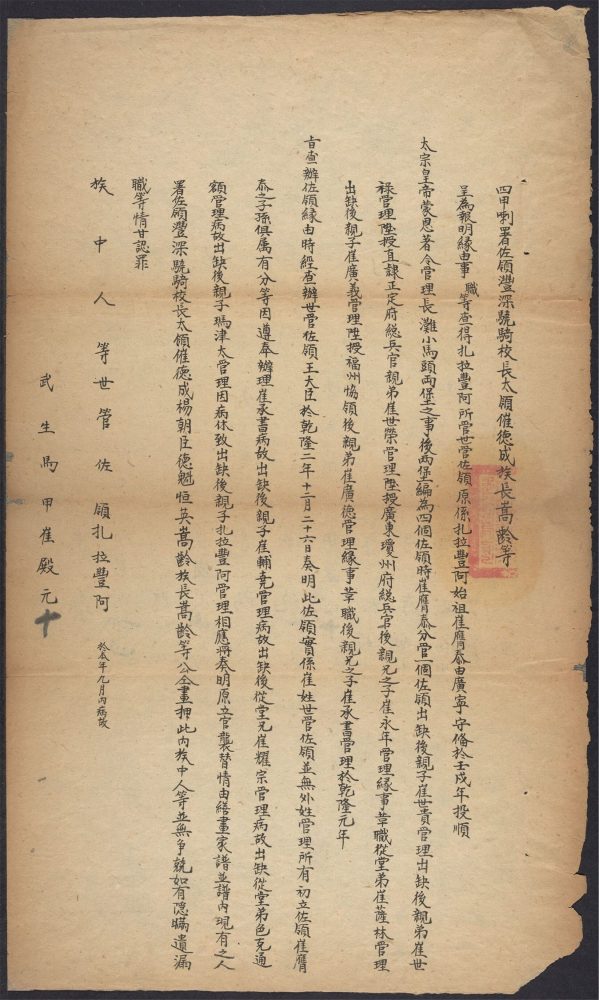 四甲喇署佐領豐深驍騎校長太領催德成族長嵩齡等
呈為報明緣由事職等查得扎拉豐阿所管世管佐領原係扎拉豐阿始祖崔膺泰由廣寧守備於壬戌年投順
太宗皇帝蒙恩著令管理長灘小馬頭兩堡之事後兩堡編為四個佐領時崔膺泰分管一個佐領出缺後親子崔世貴管理出缺後親弟崔世
祿管理陞授直隸正定府總兵官親弟崔世榮管理陞授廣東瓊州府總兵官後親兄之子崔永年管理緣事革職從堂弟崔薩林管理
出缺後親子崔廣義管理陞授福州協領後親弟崔廣德管理緣事革職後親兄之子崔承書管理於乾隆元年
旨查辦佐領緣由時經查辦世管佐領王大臣於乾隆二年十二月二十六日奏明此佐領實係崔姓世管佐領並無外姓管理所有初立佐領崔膺
泰之子孫俱屬有分等因遵奉辦理崔承書病故出缺後親子崔輔堯管理病故出缺後從堂兄崔耀宗管理病故出缺從堂弟色克通
額管理病故出缺後親子瑪津太管理因病休致出缺後親子扎拉豐阿管理相應將奏明原立官襲替情由繕畫家譜並譜內現有之人
署佐領豐深驍騎校長太領催德成楊朝臣德魁恒英嵩齡族長嵩齡等公仝畫押此內族中人等並無爭競如有隱瞞遺漏
職等情甘認罪
族中人等世管佐領扎拉豐阿 於本年九月內病故
武生馬甲崔殿元 十